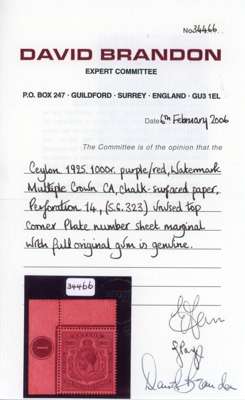 No. 34466
DAVID BRANDON
EXPERT COMMITTEE
P.O. BOX 247 · GUILDFORD · SURREY · ENGLAND · GU3 1EL
Date 6th February 2006
The Committee is of the opinion that the
Ceylon 1925. 1000r. purple/red, Watermark
Multiple Crown CA, chalk-surfaced paper,
Perforation 14, (S.G. 323) unused top
corner Plate number sheet marginal
with full original gum is genuine.
34466
David Brandon